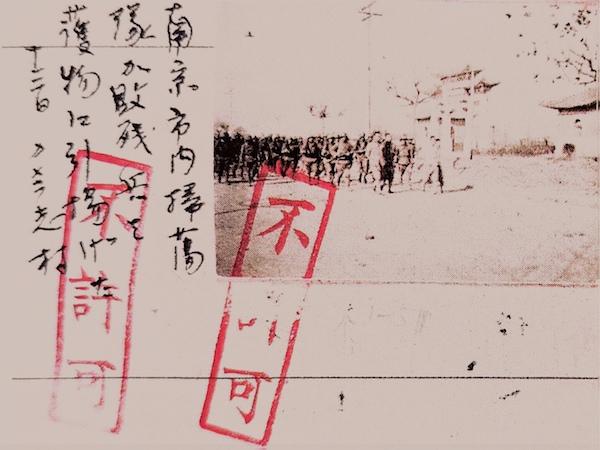 南京市内掃蕩
隊が敗残兵を
獲物に引揚げた
村
不許可
不
可